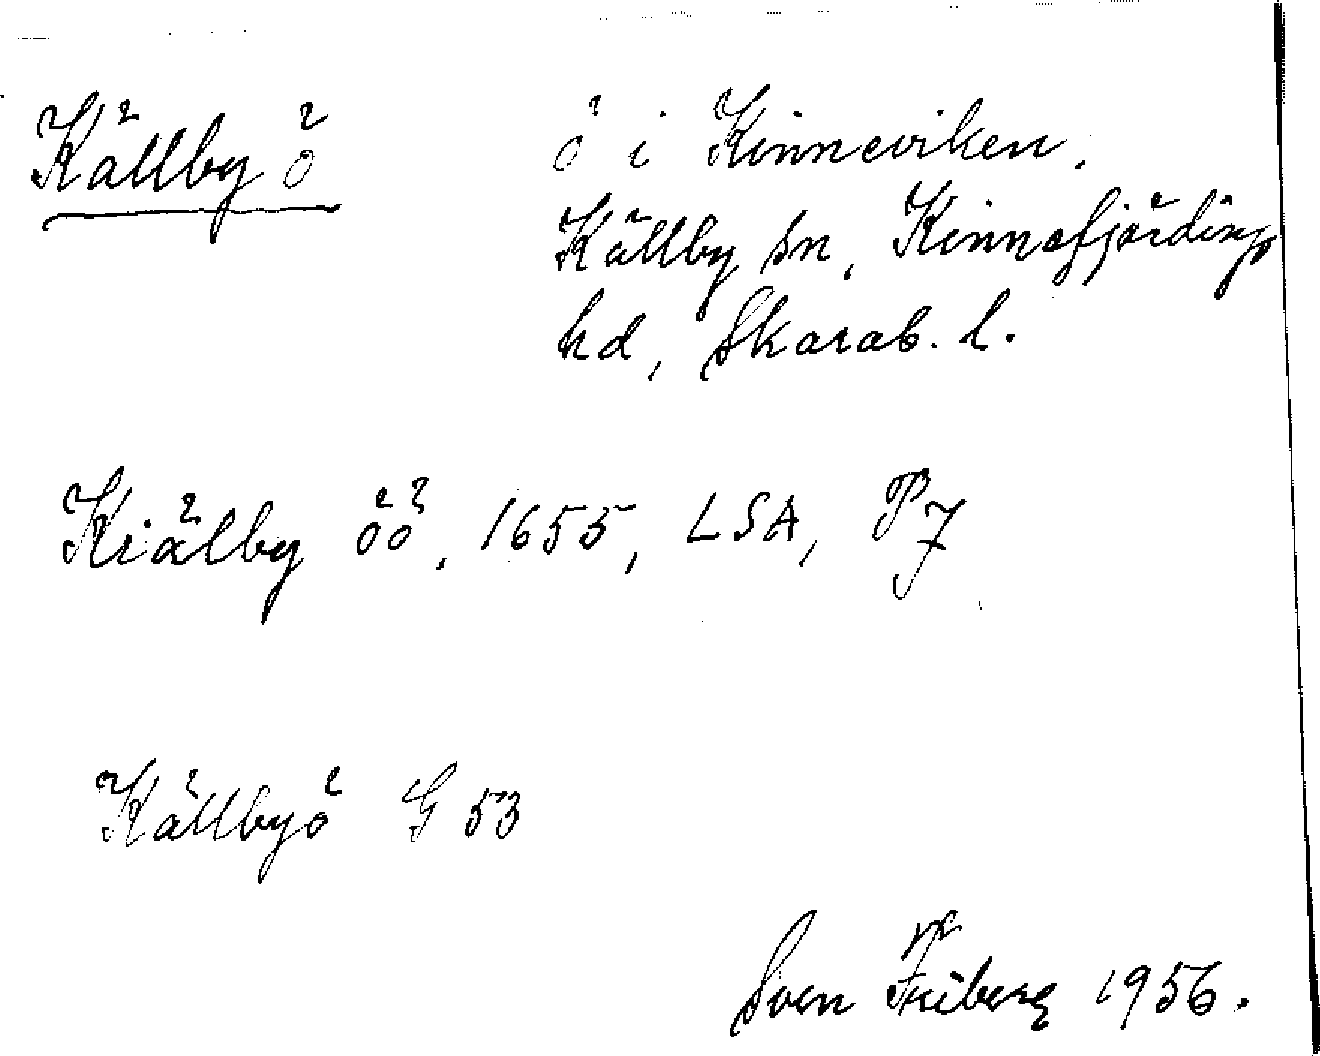 Källby ö
ö i Kinneviken.
Källby sn, Kinnefjärdings
hd, Skarab. l.
Kiälby öö, 1655, LSA, P7
Källbyö G 53
Sven Friberg 1956.